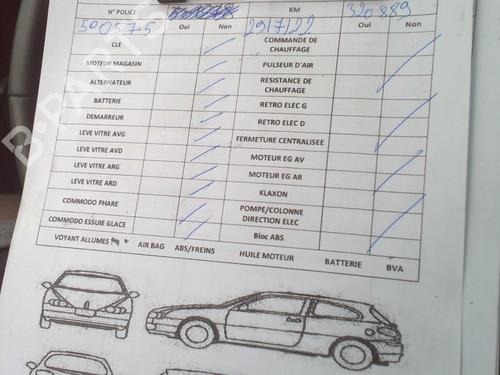 N° POLICE KM 320 889
590575 Oui Non 29 17 122 Oui Non
CLE COMMANDE DE CHAUFFAGE
MOTEUR MAGASIN PULSEUR D'AIR
ALTERNATEUR RESISTANCE DE CHAUFFAGE
BATTERIE RETRO ELEC G
DEMARREUR RETRO ELEC D
LEVE VITRE AVG FERMETURE CENTRALISEE
LEVE VITRE AVD MOTEUR EG AV
LEVE VITRE ARG MOTEUR EG AR
LEVE VITRE ARD KLAXON
COMMODO PHARE POMPE/COLONNE DIRECTION ELEC
COMMODO ESSUIE GLACE Bloc ABS
VOYANT ALLUMES AIR BAG ABS/FREINS HUILE MOTEUR BATTERIE BVA
B-PARTS